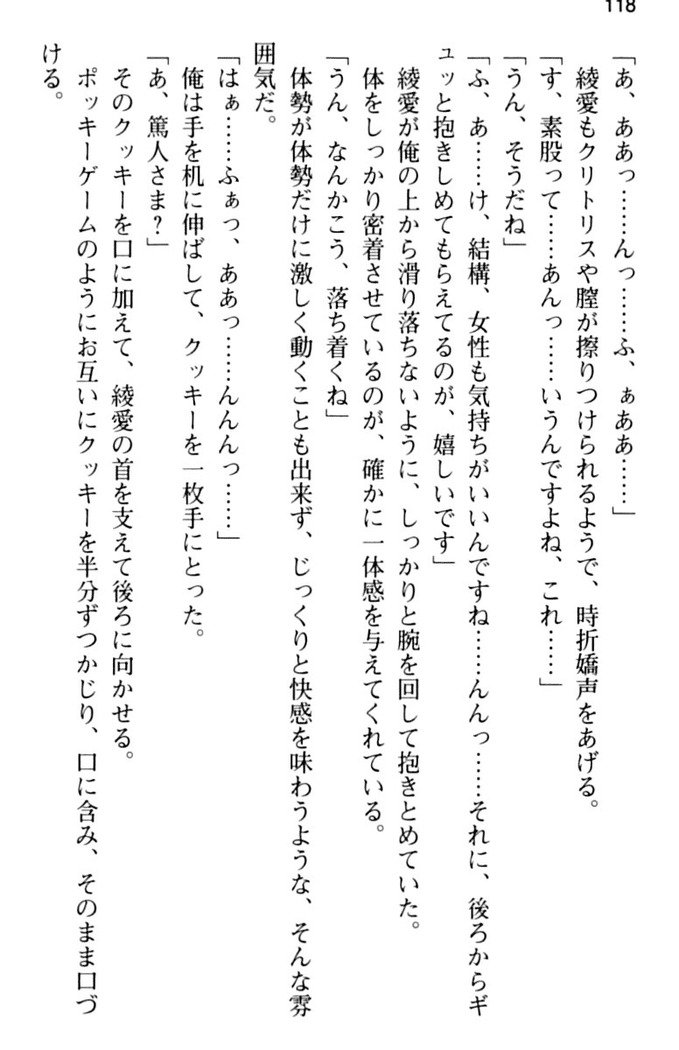 118
「あ、ああっ……んっ……ふ、ぁああ……」
　綾愛もクリトリスや膣が擦りつけられるようで、時折嬌声をあげる。
「す、素股って……あんっ……いうんですよね、これ……」
「うん、そうだね」
「ふ、あ……け、結構、女性も気持ちがいいんですね……んんっ……それに、後ろからギ
ュッと抱きしめてもらえてるのが、嬉しいです」
　綾愛が俺の上から滑り落ちないように、しっかりと腕を回して抱きとめていた。
　体をしっかり密着させているのが、確かに一体感を与えてくれている。
「うん、なんかこう、落ち着くね」
　体勢が体勢だけに激しく動くことも出来ず、じっくりと快感を味わうような、そんな雰
囲気だ。
「はぁ……ふぁっ、ああっ……んんんっ……」
　俺は手を机に伸ばして、クッキーを一枚手にとった。
「あ、篤人さま？」
　そのクッキーを口に加えて、綾愛の首を支えて後ろに向かせる。
　ポッキーゲームのようにお互いにクッキーを半分ずつかじり、口に含み、そのまま口づ
ける。